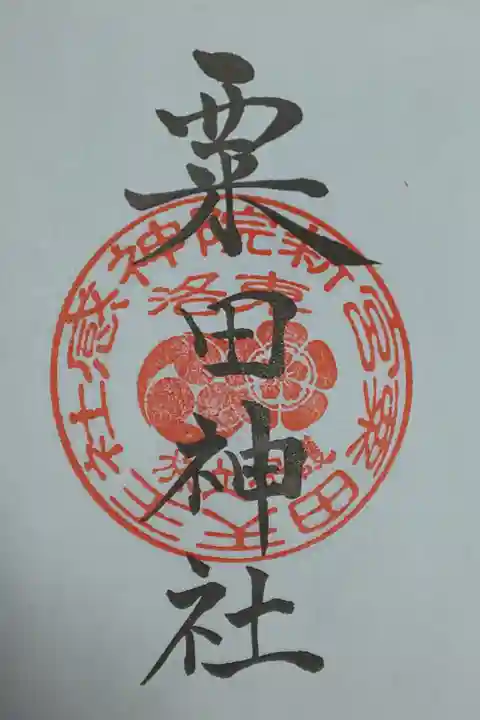 粟田神社
感神院新宮粟田天王社
東洛